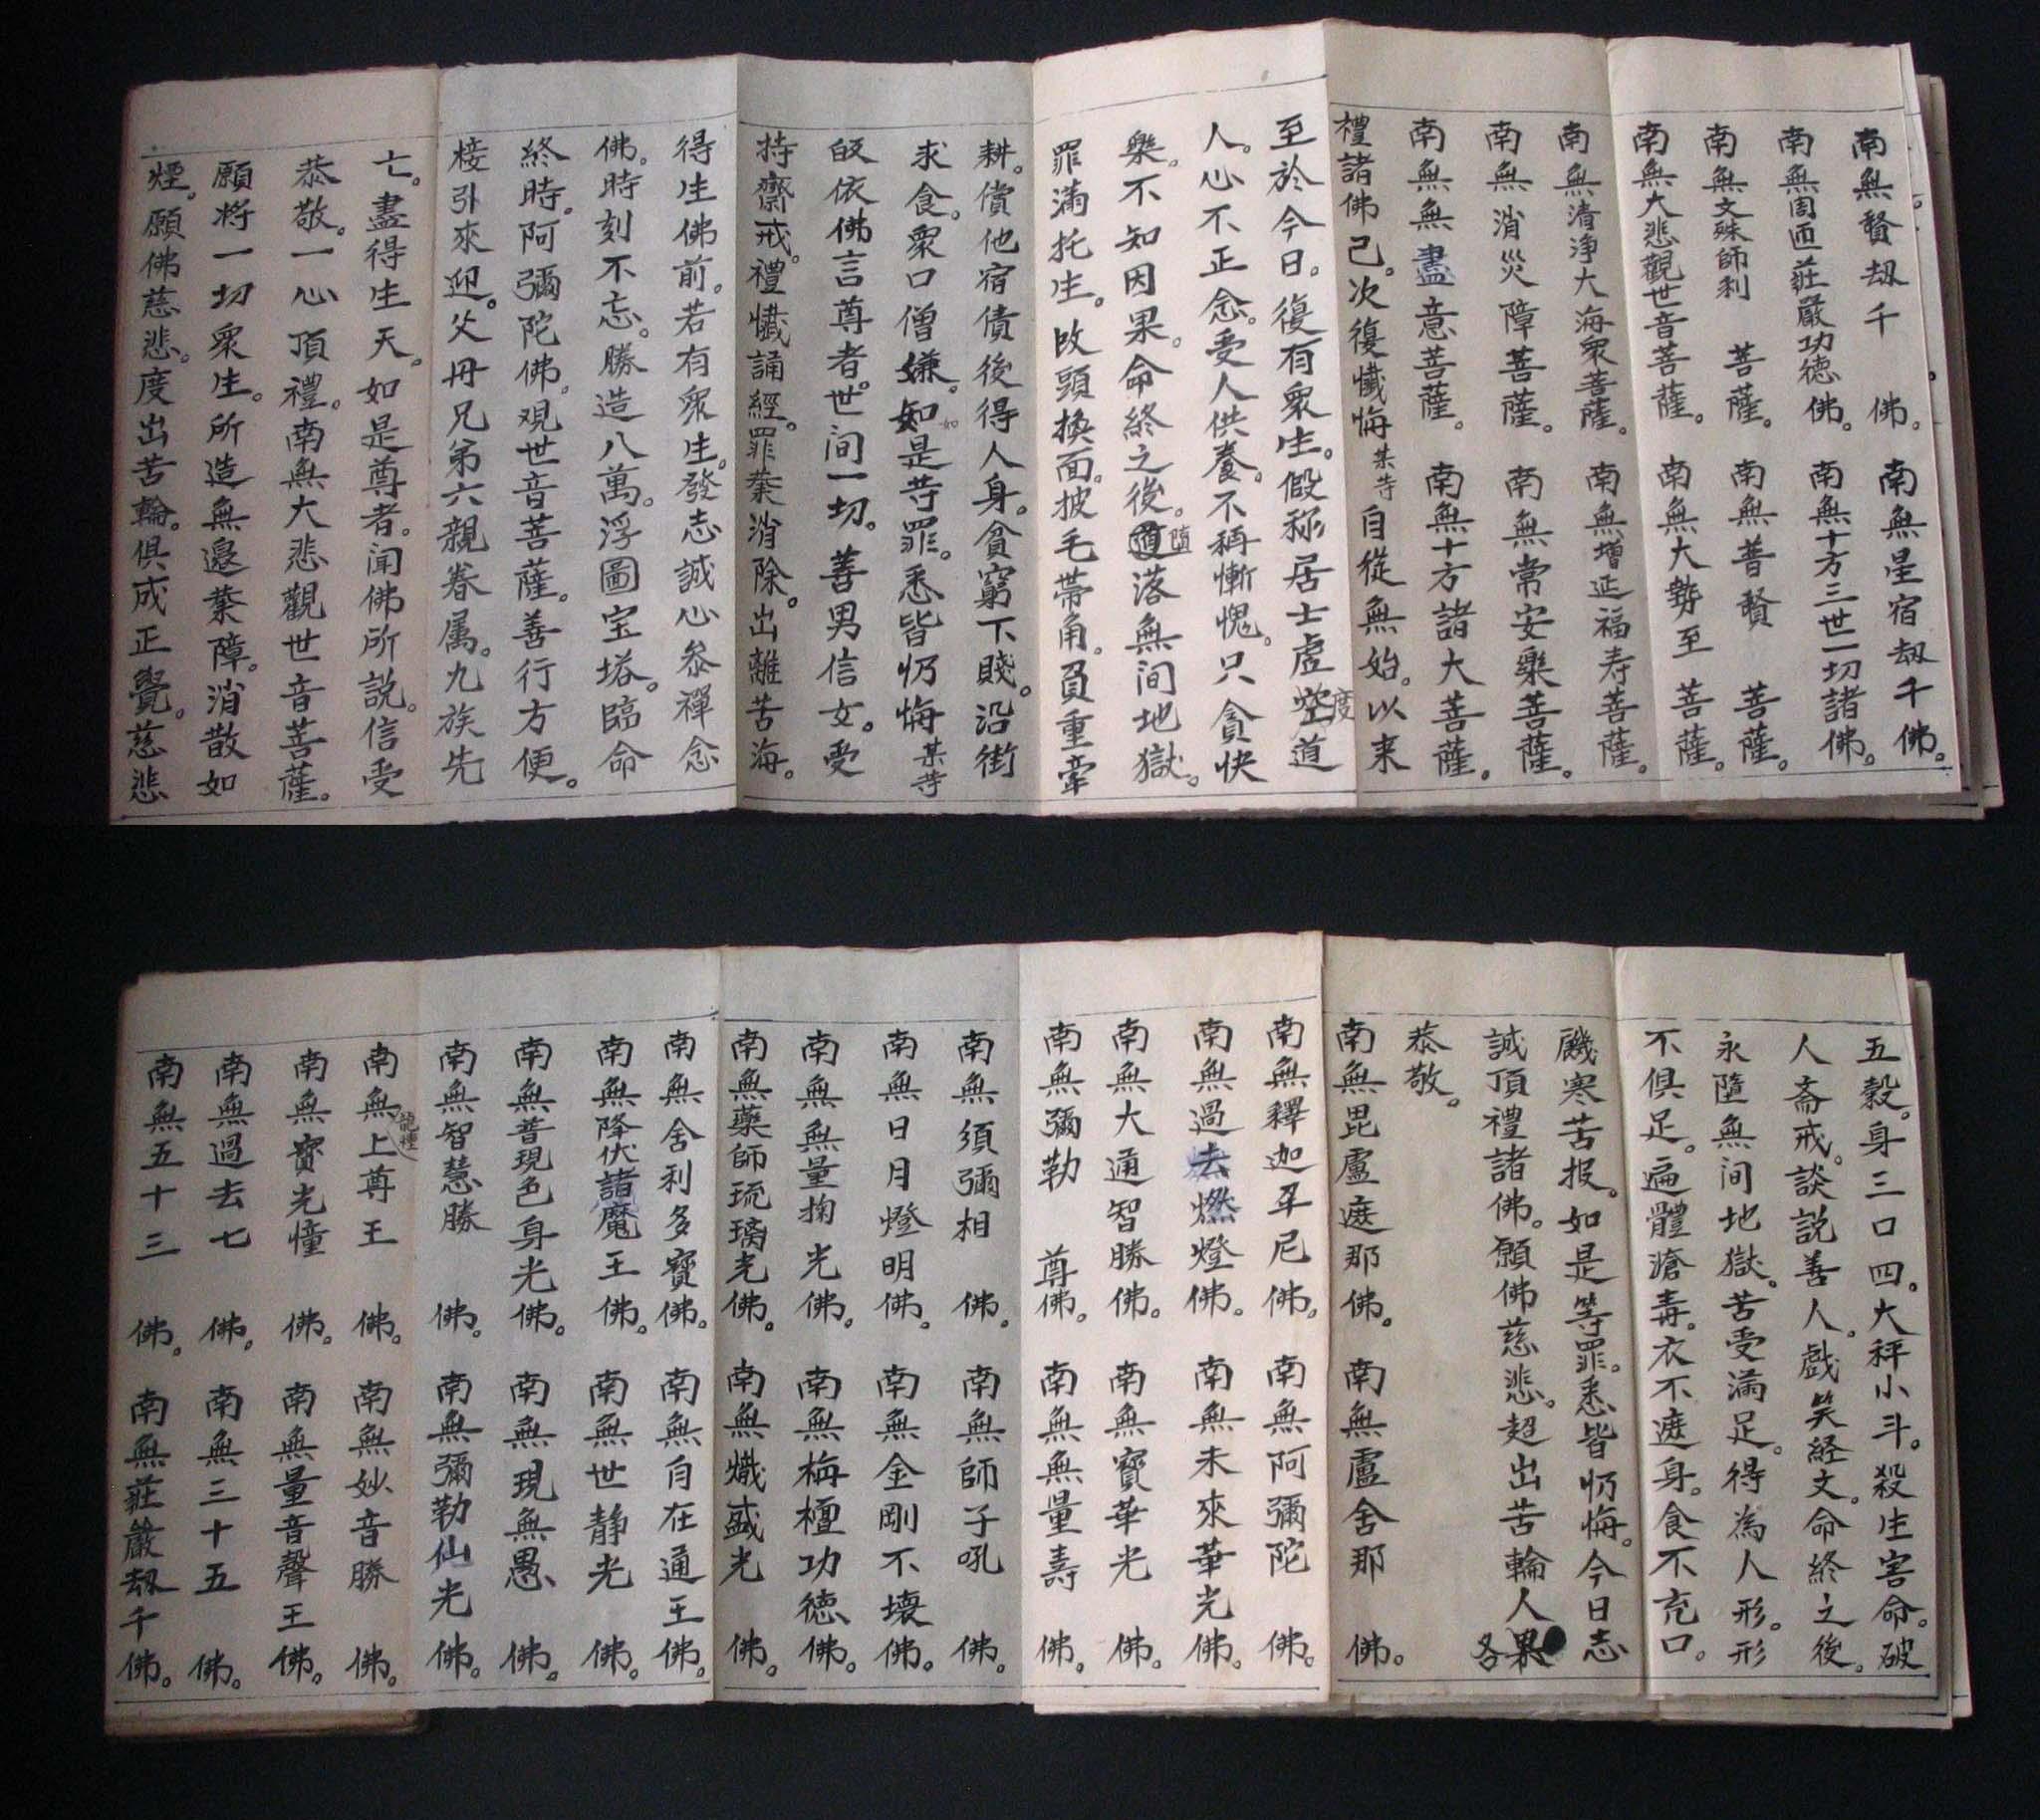 南無賢刼千　佛。南無星宿刼千佛。
南無周迊莊嚴功德佛。南無十方三世一切諸佛。
南無文殊師利　菩薩。南無普賢　菩薩。
南無大悲觀世音菩薩。南無大勢至　菩薩。
南無清淨大海衆菩薩。南無增延福寿菩薩。
南無消災障菩薩。南無常安樂菩薩。
南無無盡意菩薩。南無十方諸大菩薩。
禮諸佛已。次復懺悔某等自從無始。以来
至於今日。復有衆生。假称居士虛度空道
人。心不正念。受人供養。不稱慚愧。只貪快
樂。不知因果。命終之後。墮落無间地獄。
罪滿托生。改頭換面。披毛帶角。負重牽
耕。償他宿債後得人身。貧窮下賤。沿街
求食。衆口僧嫌。如是等罪。悉皆忏悔某等
皈依佛言尊者。世间一切。善男信女。受
持齋戒。禮懺誦經。罪業消除。出離苦海。
得生佛前。若有衆生。發志誠心叅禪念
佛。時刻不忘。勝造八萬。浮圖宝塔。臨命
終時。阿彌陀佛。观世音菩薩。善行方便。
接引來迎。父母兄弟六親眷属。九族先
亡。盡得生天。如是尊者。闻佛所説。信受
恭敬。一心頂禮。南無大悲觀世音菩薩。
願将一切衆生。所造無邉業障。消散如
煙。願佛慈悲。度出苦輪。俱成正覺。慈悲
五穀。身三口四。大秤小斗。殺生害命。破
人斋戒。談説善人。戲笑経文。命終之後。
永隨無间地獄。苦受滿足。得為人形。形
不俱足。遍體滄毒。衣不遮身。食不充口。
饑寒苦报。如是等罪。悉皆忏悔。今日志
誠頂禮諸佛。願佛慈悲。超出苦輪人果各
恭敬。
南無毘盧遮那佛。南無盧舍那　佛。
南無釋迦牟尼佛。南無阿彌陀　佛。
南無過去燃燈佛。南無未來華光佛。
南無大通智勝佛。南無寶華光　佛。
南無彌勒　尊佛。南無無量壽　佛。
南無須彌相　佛。南無師子吼　佛。
南無日月燈明佛。南無金剛不壞佛。
南無無量掬光佛。南無栴檀功德佛。
南無藥師琉璃光佛。南無熾盛光　佛。
南無舍利多寶佛。南無自在通王佛。
南無降伏諸魔王佛。南無世静光　佛。
南無普現色身光佛。南無現無愚　佛。
南無智慧勝　佛。南無彌勒仙光　佛。
南無龍種上尊王　佛。南無妙音勝　佛。
南無寶光幢　佛。南無量音聲王佛。
南無過去七　佛。南無三十五　佛。
南無五十三　佛。南無莊嚴刼千佛。